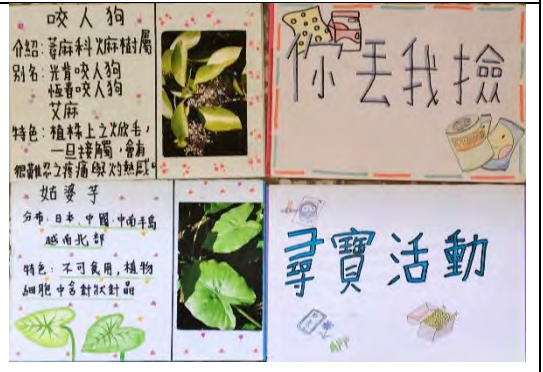 咬人狗
介紹:蕁麻科火麻樹屬
別名:光肯咬人狗
恆春咬人狗
艾麻
特色:植株上之焮毛,
一旦接觸,會有
很難忍之疼痛與灼熱感。
你丟我撿
姑婆芋
分布:日本、中國、中南半島
越南北部
特色:不可食用,植物
細胞中含針狀針晶
尋寶活動
APP